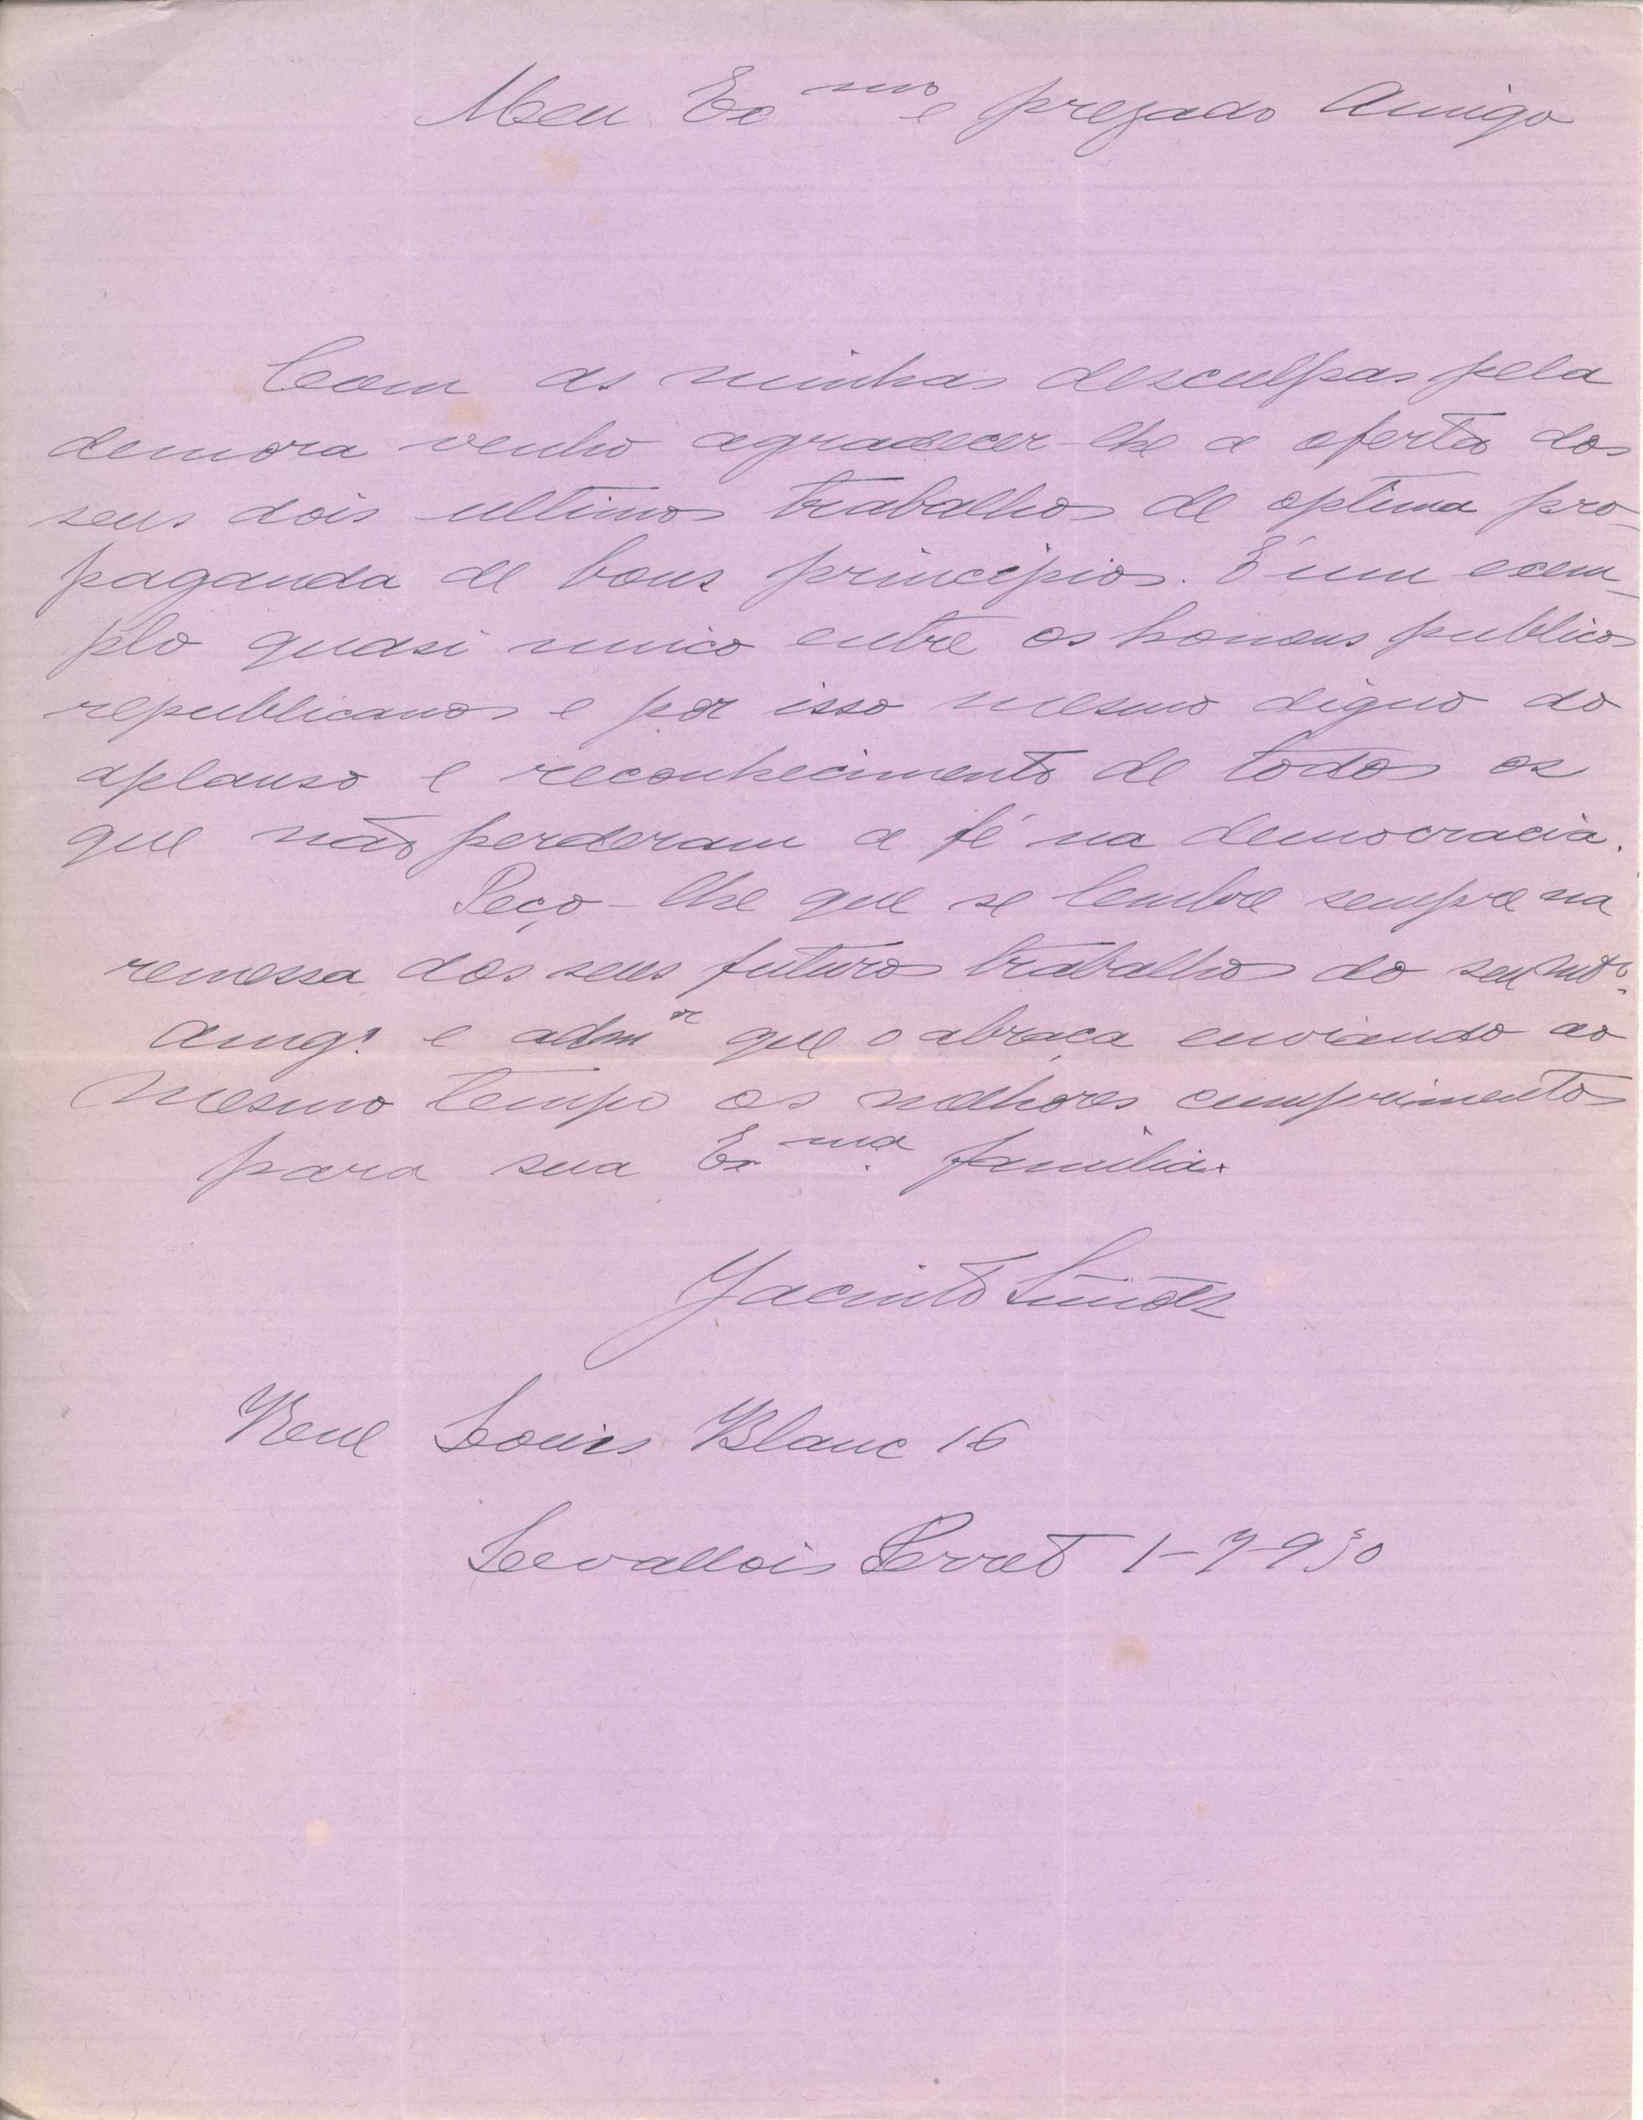 Meu Ex^mo e prezado Amigo
Com as minhas desculpas pela
demora venho agradecer-lhe a oferta dos
seus dois ultimos trabalhos de optima pro-
paganda de bons principios. É um exem-
plo quasi unico entre os homens publicos
republicanos e por isso mesmo digno do
aplauso e reconhecimento de todos os
que não perderam a fé na democracia.
Peço-lhe que se lembre sempre na
remessa dos seus futuros trabalhos do seu mt^o
amg^o e adm^or que o abraça enviando ao
mesmo tempo os melhores cumprimentos
para sua Ex^ma familia.
Jacinto Simões
Rue Louis Blanc 16
Levallois Perret 1-7-930